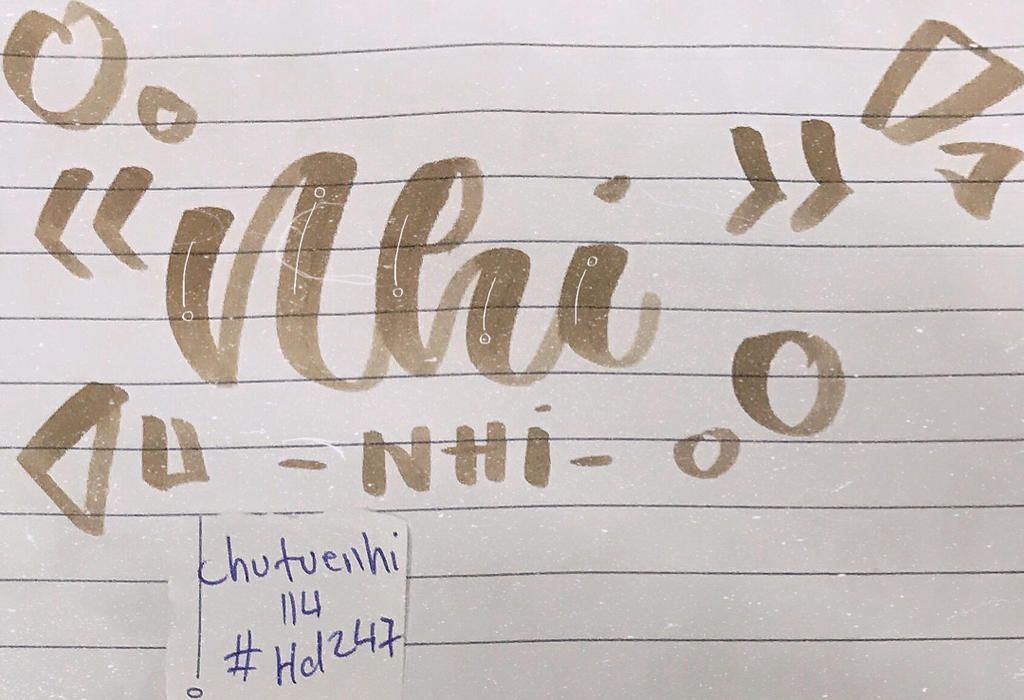 « Nhi »
- NHi -
chutuenhi
114
#Hd247